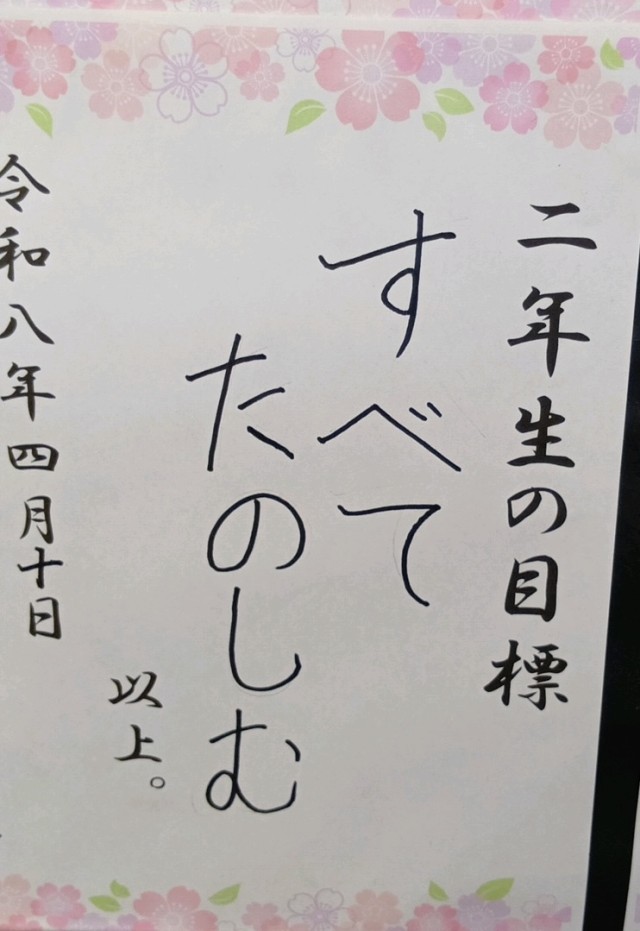 二年生の目標
すべて
たのしむ
以上。
令和八年四月十日